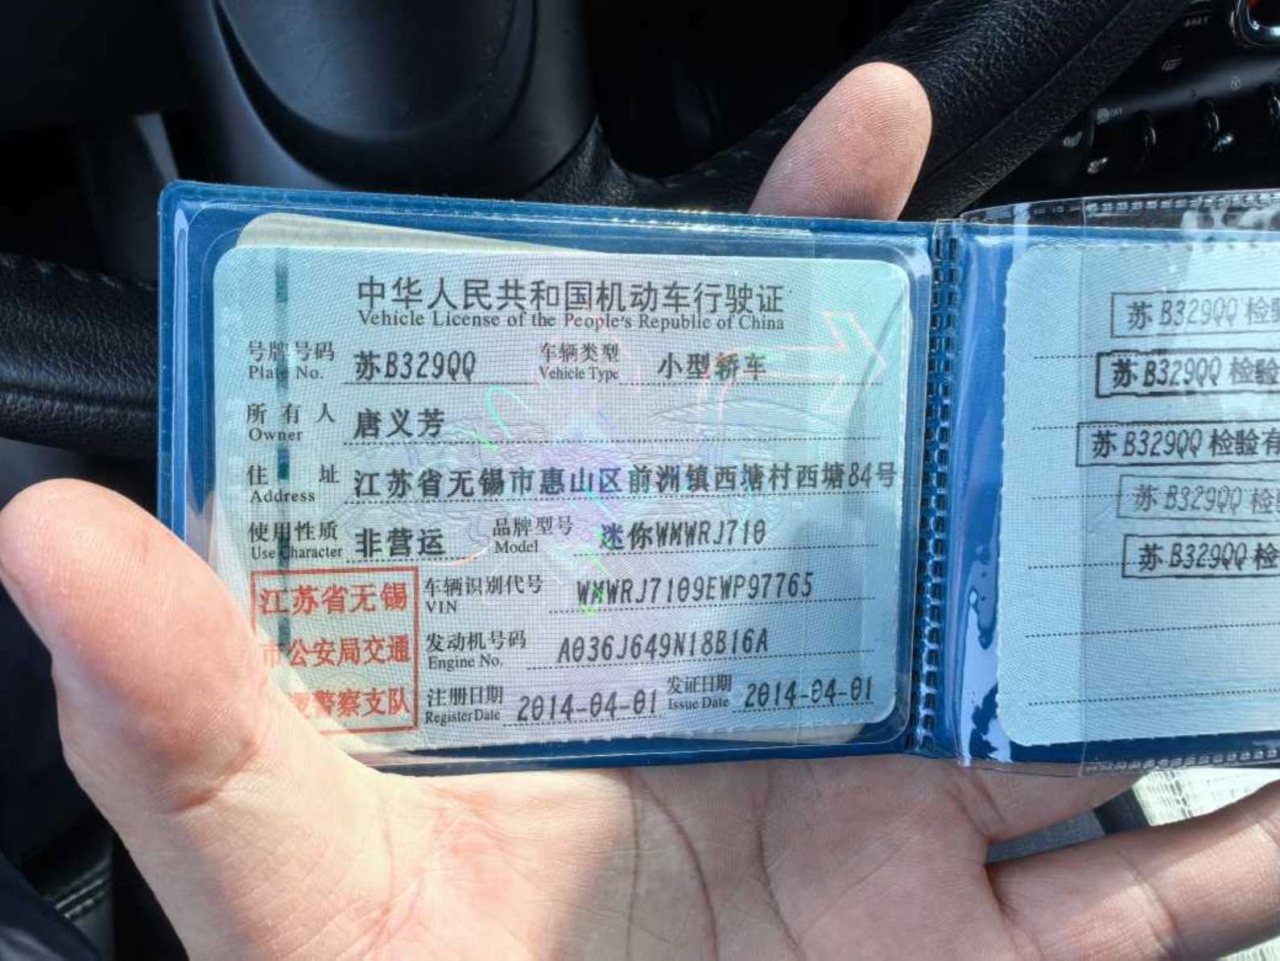 中华人民共和国机动车行驶证
Vehicle License of the People's Republic of China
号牌号码 苏B329QQ 车辆类型 小型轿车
Plate No. Vehicle Type
所有人 唐义芳
Owner
住址 江苏省无锡市惠山区前洲镇西塘村西塘84号
Address
使用性质 非营运 品牌型号 迷你WMWRJ710
Use Character Model
江苏省无锡
市公安局交通
警察支队
车辆识别代号 WMWRJ7109EWP97765
VIN
发动机号码 A036J649N18B16A
Engine No.
注册日期 2014-04-01 发证日期 2014-04-01
Register Date Issue Date
苏B329QQ 检
苏B329QQ 检验
苏B329QQ 检验有
苏B329QQ 检
苏B329QQ 检